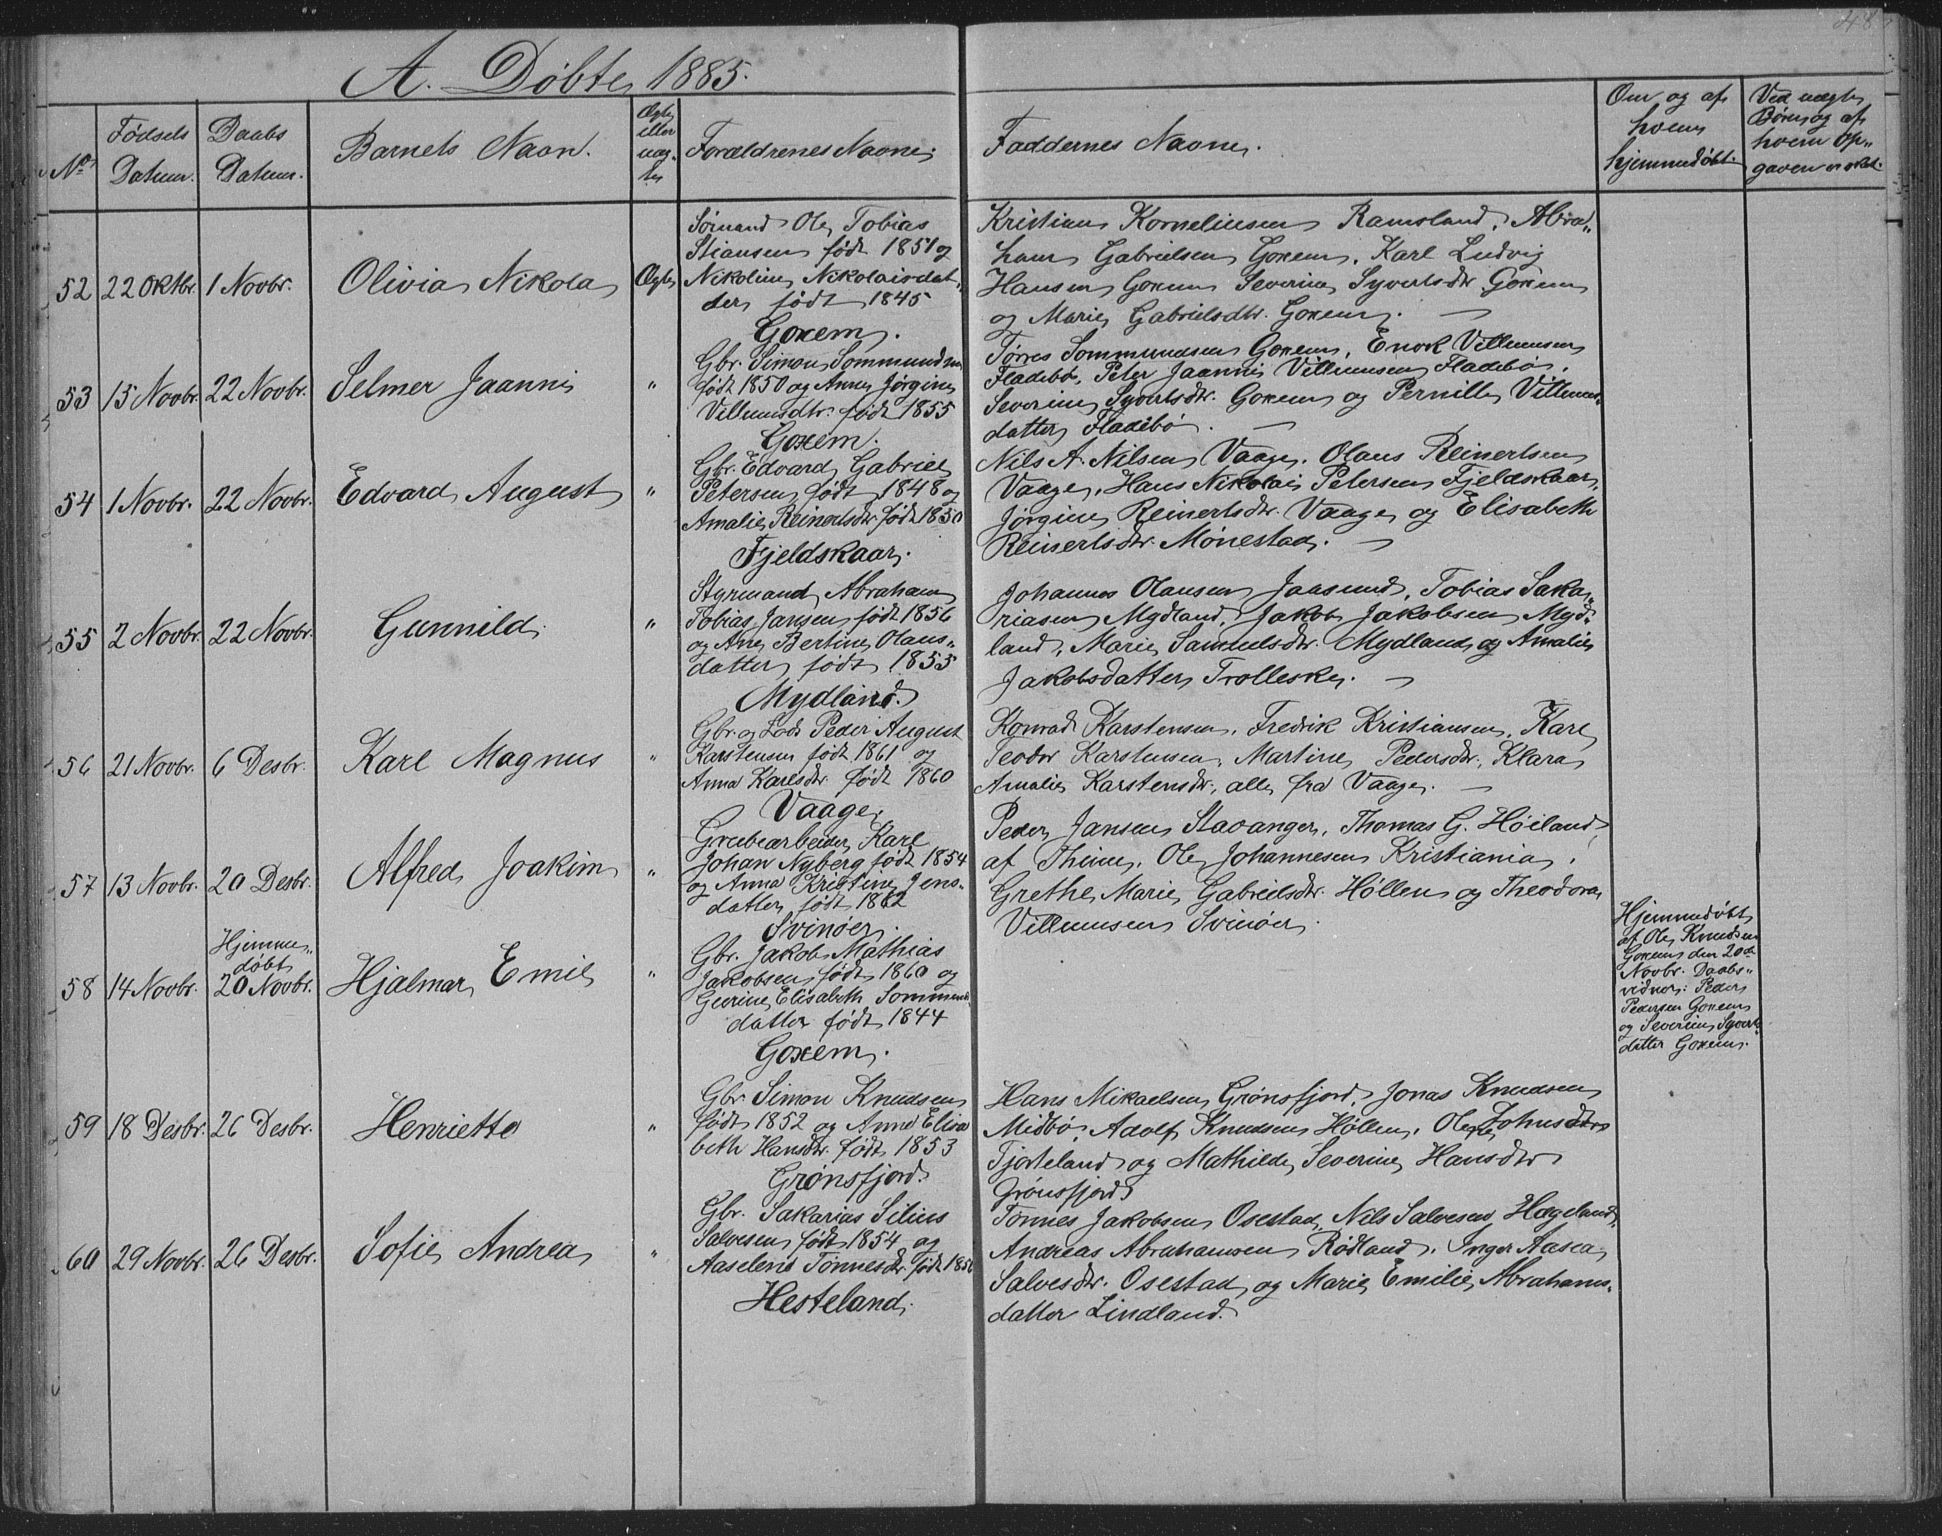 48
A. Døbte 1885.
No
Fødsels Datum.
Daabs Datum.
Barnets Navn.
Ægte eller uæg-te
Forældrenes Navne.
Faddernes Navne.
Om og af hvem hjemmedøbt.
Ved uægte Børn og af hvem Op-gaven er sket.
52 22 Oktbr. 1 Novbr. Olivia Nikola Ægte
Sømand Ole Tobias
Stiansen født 1851 og
Nikoline Nikolaisdat-
der født 1845
Goxem.
Kristian Korneliusen Ramsland, Abra-
ham Gabrielsen Goxem, Karl Ludvig
Hansen Goxem Severine Syvertsdtr. Goxem
og Marie Gabrielsdtr. Goxem. —
53 15 Novbr. 22 Novbr. Selmer Jaannis "
Gbr. Simon Sommundsen
født 1850 og Anne Jørgine
Villumsdtr. født 1855
Goxem.
Tørres Sommundsen Goxem, Enok Villumsen
Fladebø, Peter Jaannis Villumsen Fladebø,
Severine Syvertsdtr. Goxem og Pernille Villums-
datter Fladebø. —
54 1 Novbr. 22 Novbr. Edvard August "
Gbr. Edvard Gabriel
Petersen født 1848 og
Amalie Reinertsdtr. født 1850
Fjeldskaar.
Nils A. Nilsen Vaage, Olaus Reinertsen
Vaage, Hans Nikolai Petersen Fjeldskaar,
Jørgine Reinertsdtr. Vaage og Elisabeth
Reinertsdtr. Mønestad. —
55 2 Novbr. 22 Novbr. Gunnild. "
Styrmand Abraham
Tobias Jansen født 1856
og Ane Bertine Olaus-
datter født 1855
Mydland.
Johannes Olausen Jaasund, Tobias Saka-
riasen Mydland, Jakob Jakobsen Myd-
land, Marie Samuelsdtr. Mydland og Amalie
Jakobsdatter Trolleske. —
56 21 Novbr. 6 Desbr. Karl Magnus "
Gbr. og Lods Peder August
Karstensen født 1861 og
Anna Karlsdtr. født 1860
Vaage.
Konrad Karstensen, Fredrik Kristiansen, Karl
Teodor Karstensen, Martine Pedersdtr., Klara
Amalie Karstensdtr., alle fra Vaage. —
57 13 Novbr. 20 Desbr. Alfred Joakim "
Grubearbeider Karl
Johan Nyberg født 1854
og Anna Kristine Jens-
datter født 1862
Svinøer.
Peder Jansen Stavanger, Thomas G. Høiland
af Thime, Ole Johannesen Kristiania,
Grethe Marie Gabrielsdtr. Høllen og Theodora
Villumsen Svinøer.
58 14 Novbr. Hjemme-
døbt
20 Novbr. Hjalmar Emil "
Gbr. Jakob Mathias
Jakobsen født 1860 og
Gurine Elisabeth Sommunds
datter født 1844
Goxem.
Hjemmedøbt
af Ole Knudsen
Goxem den 20de
Novbr. Daabs-
vidner: Peder
Pedersen Goxem
og Severine Syverts
datter Goxem.
59 18 Desbr. 26 Desbr. Henriette "
Gbr. Simon Knudsen
født 1852 og Anne Elisa
beth Hansdtr. født 1853
Grønsfjord.
Hans Mikaelsen Grønsfjord, Jonas Knudsen
Midbø, Adolf Knudsen Høllen, Johnsdtr
Tjorteland og Mathilde Severine Hansdtr
Grønsfjord
60 29 Novbr. 26 Desbr. Sofie Andrea "
Gbr. Sakarias Silius
Salvesen født 1854 og
Aaselene Tønnesdtr. født
Hesteland.
Tønnes Jakobsen Osestad, Nils Salvesen Hægeland,
Andreas Abrahamsen Rødland, Inger Aasea
Salvesdtr. Osestad og Marie Emilie Abrahams-
datter Lindland.